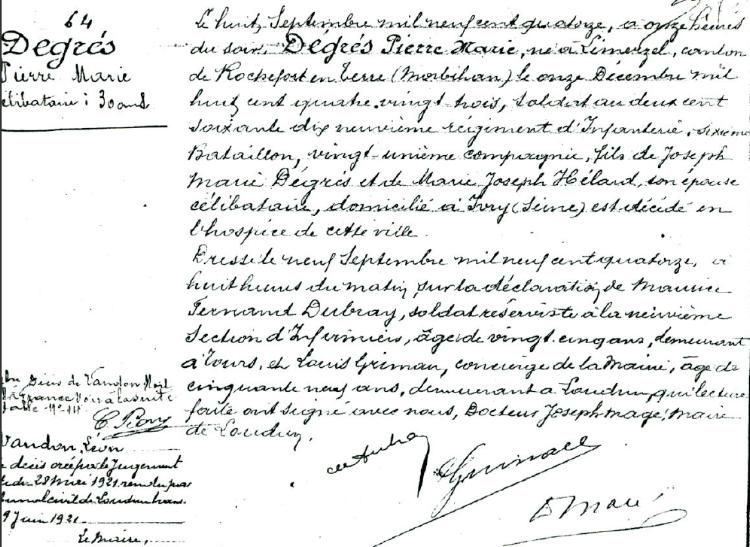 64
Degrés
Pierre Marie
célibataire : 30 ans
Le huit Septembre mil neuf cent quatorze, à onze heures
du soir, Degrés Pierre Marie, né à Limerzel, canton
de Rochefort en Terre (Morbihan) le onze Décembre mil
huit cent quatre-vingt-trois, soldat au deux cent
soixante dix neuvième régiment d'Infanterie, sixième
Bataillon, vingt-unième compagnie, fils de Joseph
Marie Dégrés et de Marie Joseph Hélard, son épouse
célibataire, domicilié à Ivry (Seine) est décédé en
l'hospice de cette ville.
Dressé le neuf Septembre mil neuf cent quatorze, à
huit heures du matin, sur la déclaration de Maurice
Fernand Dubray, soldat réserviste à la neuvième
Section d'Infirmiers, âgé de vingt cinq ans, demeurant
à Tours, et Louis Grimau, concierge de la Mairie, âgé de
cinquante neuf ans, demeurant à Loudun, qui lecture
faite ont signé avec nous, Docteur Joseph Magé, Maire
de Loudun.
de Vandon
Vandon, Léon
décès par le Jugement
du 28 Mai 1921 rendu par
civil de Loudun
9 Juin 1921
Le Maire,